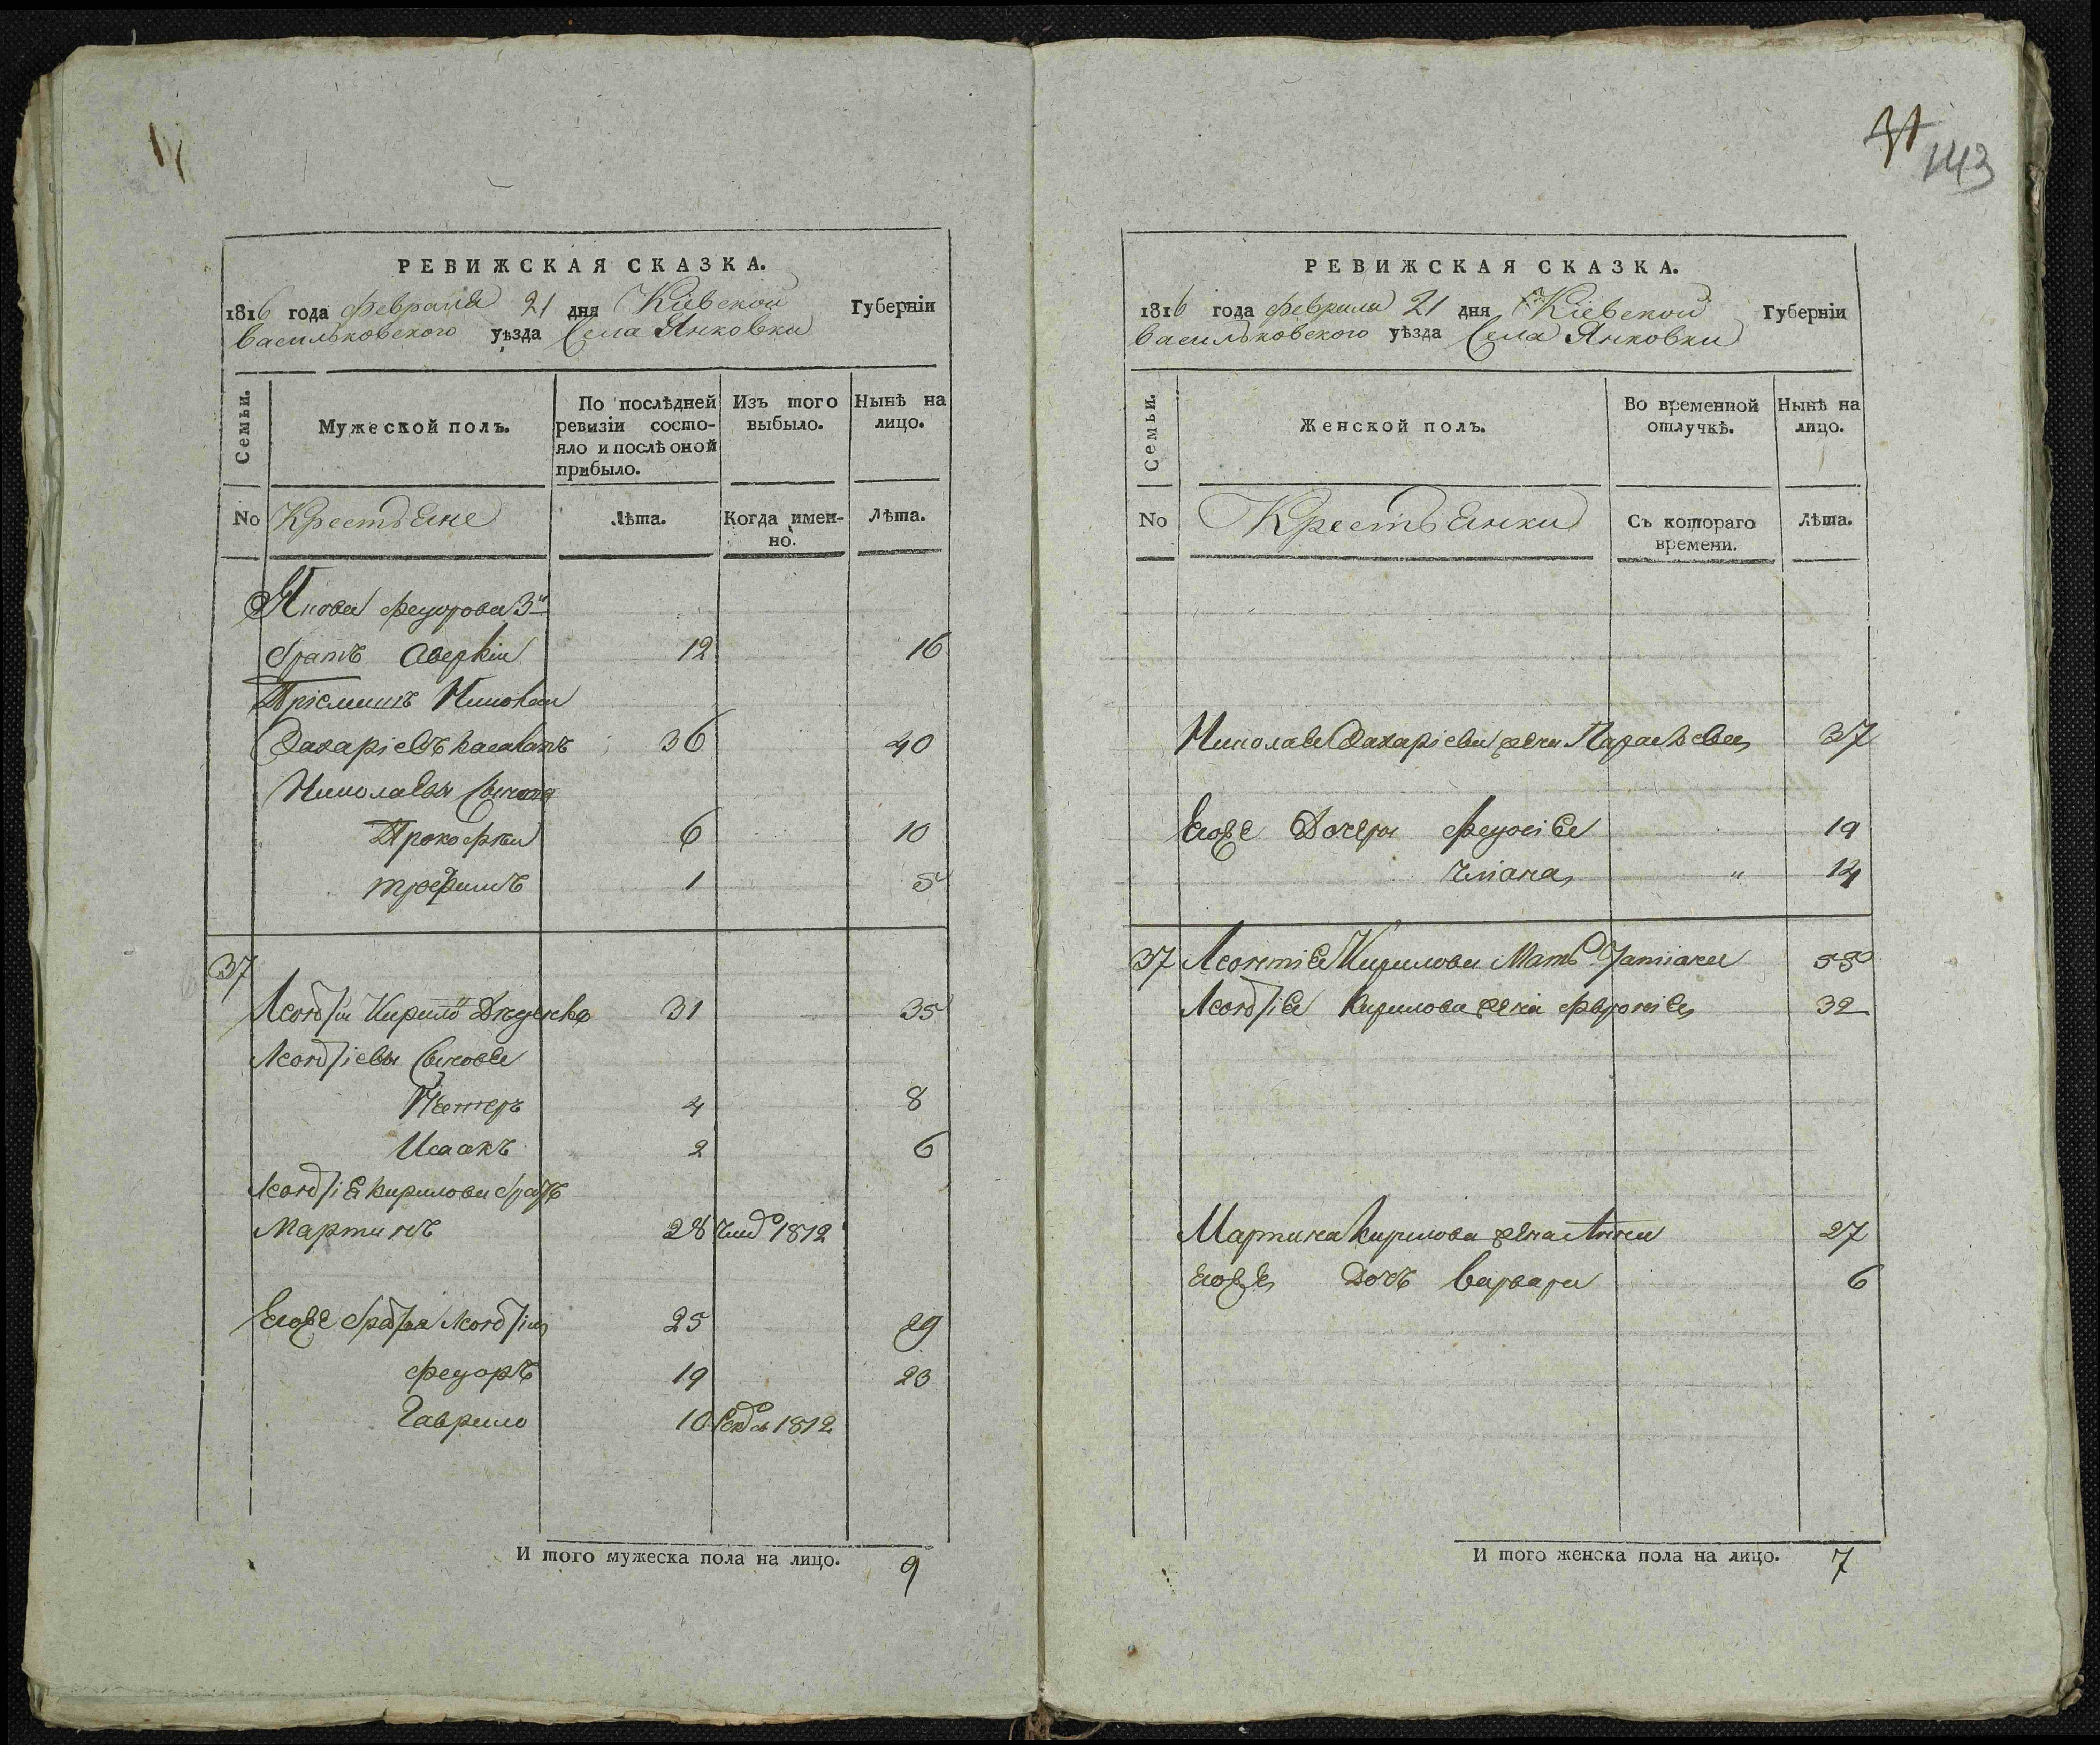 РЕВИЖСКАЯ СКАЗКА.
1816 года февраля 21 дня Кіевской Губерніи
васильковского уѣзда Села Янковки
Семьи.
Мужеской полъ.
По послѣдней ревизіи состояло и послѣ оной прибыло.
Изъ того выбыло.
Нынѣ на лицо.
No
Крестьяне
Лѣта.
Когда имен-но.
Лѣта.
Якова федорова 3й
братъ Аверкій 12 16
Пріемышъ Николай
Захаріевъ 36 40
Николаевы Сыновя
Прокофій 6 10
трофимъ 1 5
37
Леонтій Кирило 31 35
Леонтіевы Сыновья
Петеръ 4 8
Исаакъ 2 6
Леонтія кирилова братъ
Мартинъ 28 1812
Его же братья Леонтій 25 29
федоръ 19 23
Гаврило 10 1812
И того мужеска пола на лицо. 9
31
143
РЕВИЖСКАЯ СКАЗКА.
1816 года февраля 21 дня Кіевской Губерніи
васильковского уѣзда Села Янковки
Семьи.
Женской полъ.
Во временной отлучкѣ.
Нынѣ на лицо.
No
Крестьянки
Съ котораго времени.
Лѣта.
Николая Захаріева жена Параскевия 37
Его же Дочери федосія 19
уліана " 14
37 Леонтія Кирилова Мать Татіана 55
Леонтія Кирилова жена февронія 32
Мартина кирилова жена Анна 27
Его же Дочь варвара 6
И того женска пола на лицо. 7